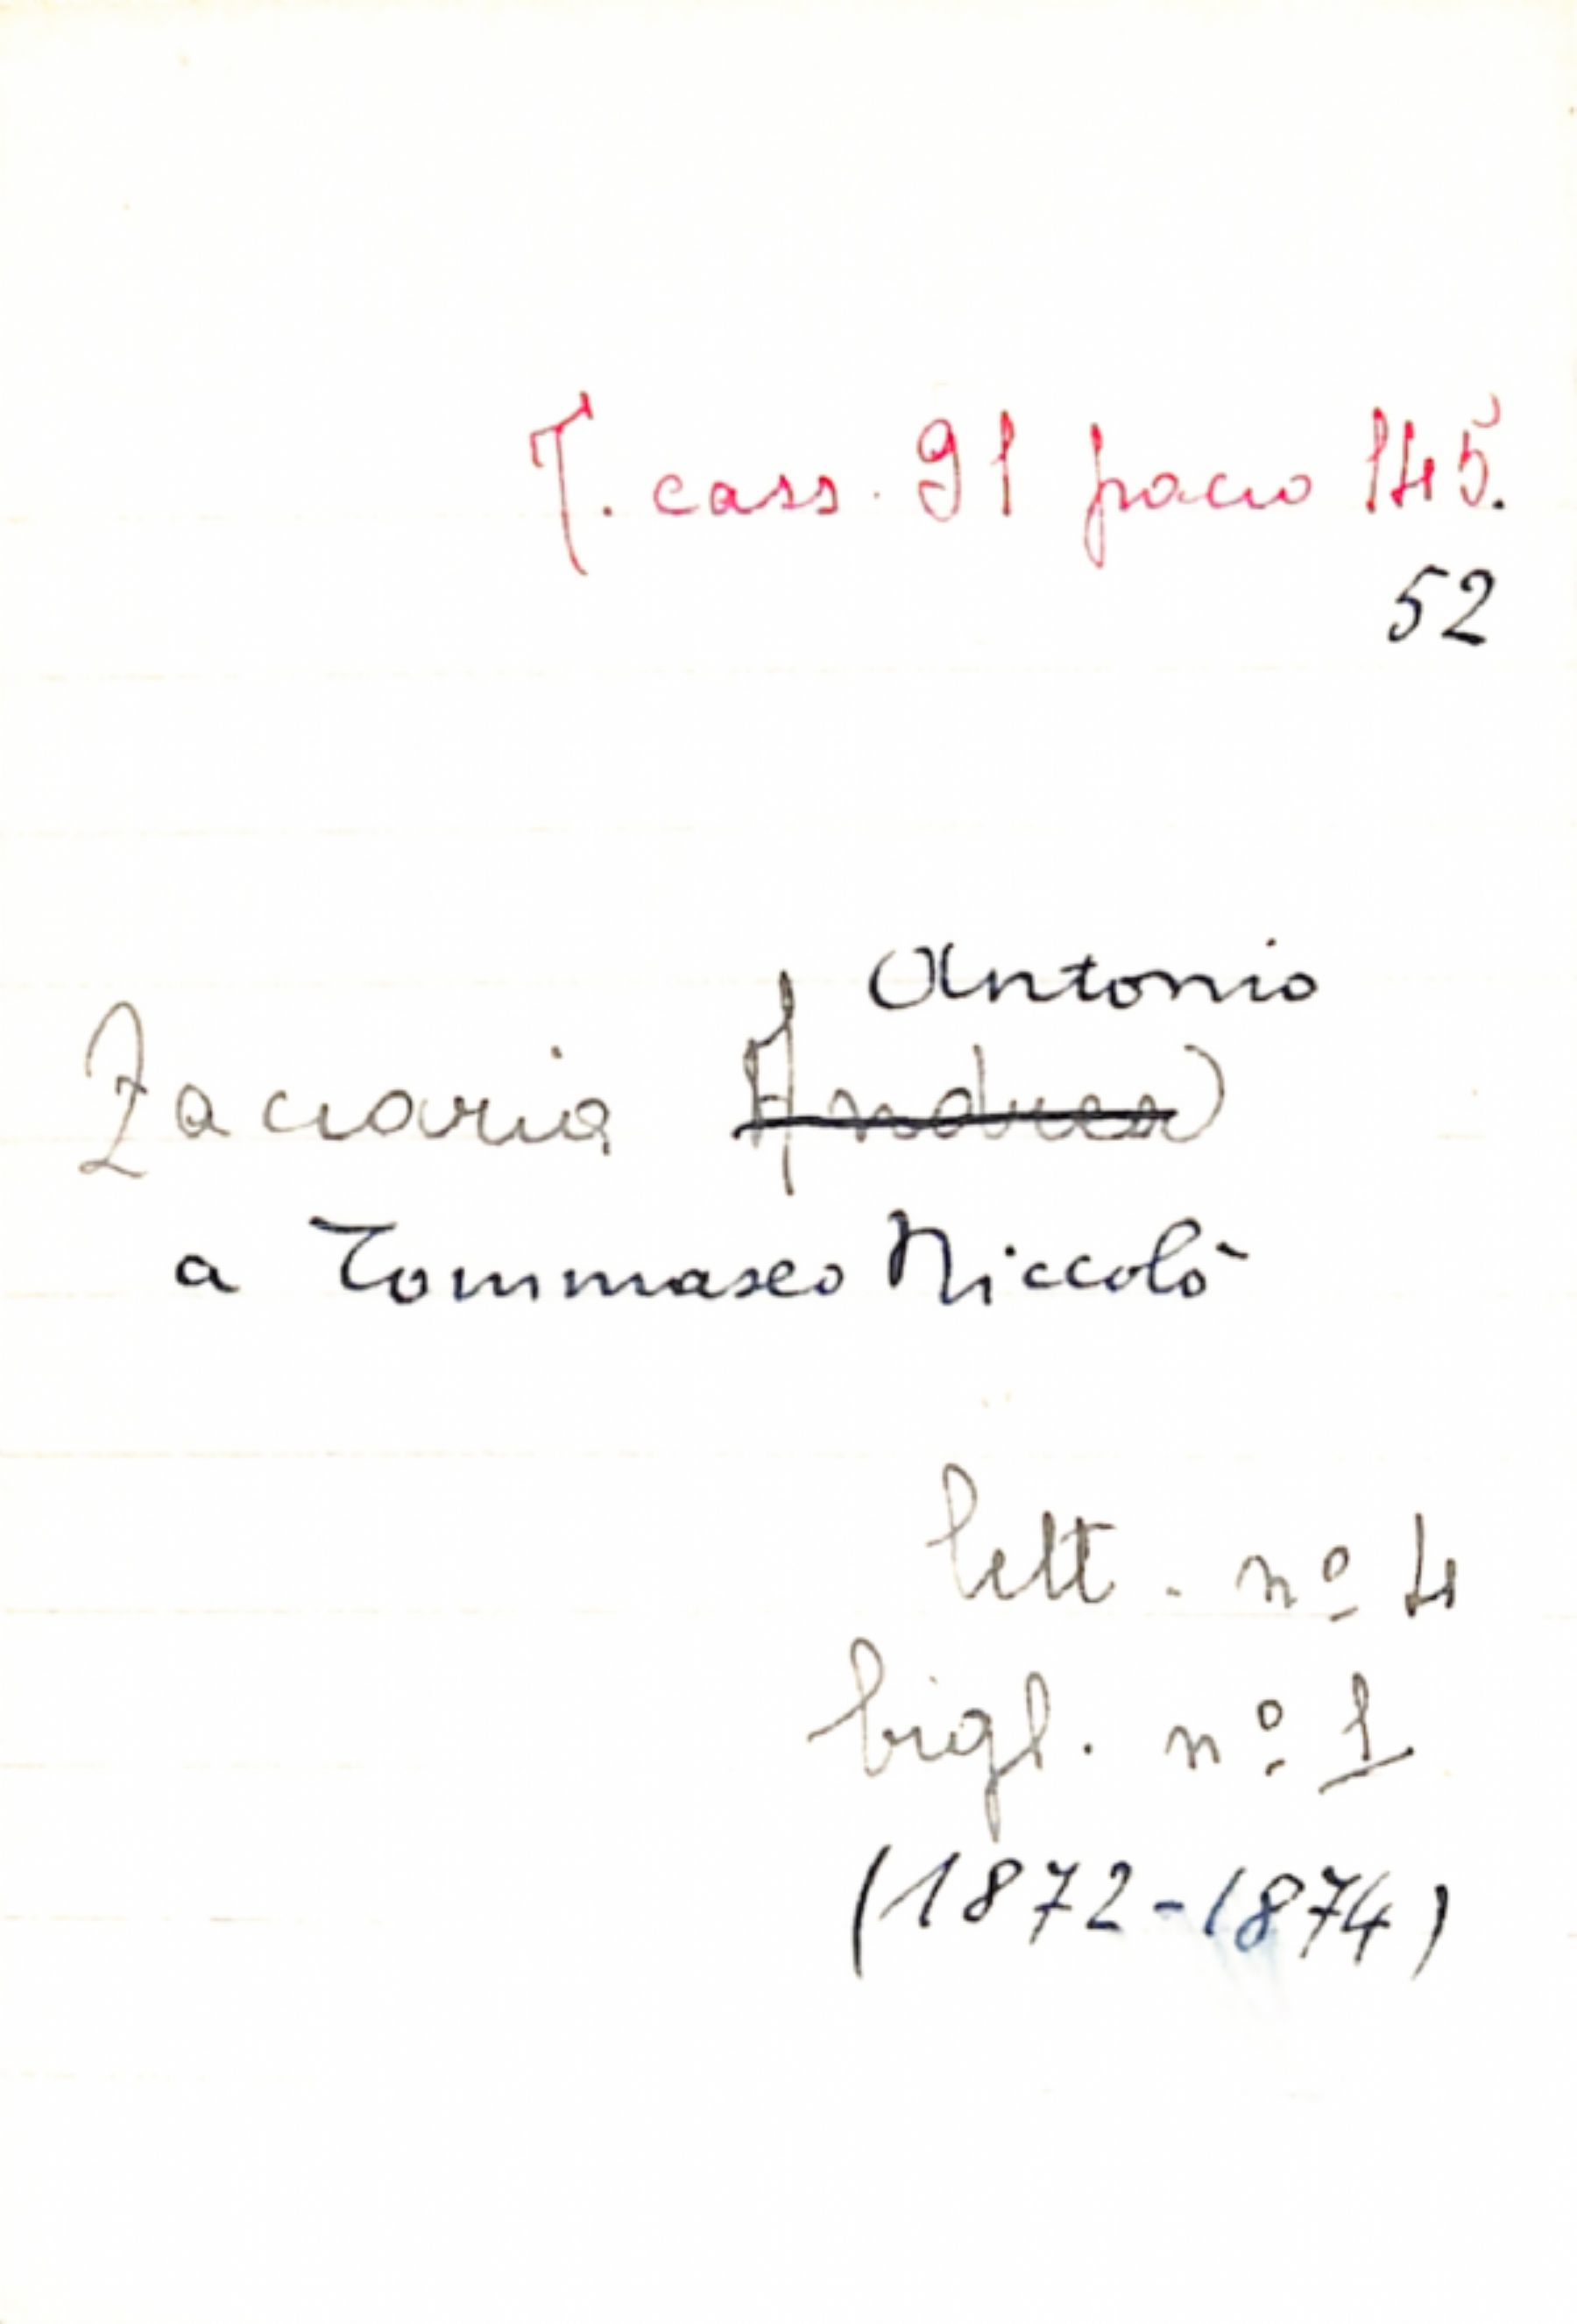 T. cass. 91 pacco 145.
52
Antonio
Zaccaria Andrea
a Tommaseo Niccolò
lett. nº 4
bigl. nº 1
(1872-1874)